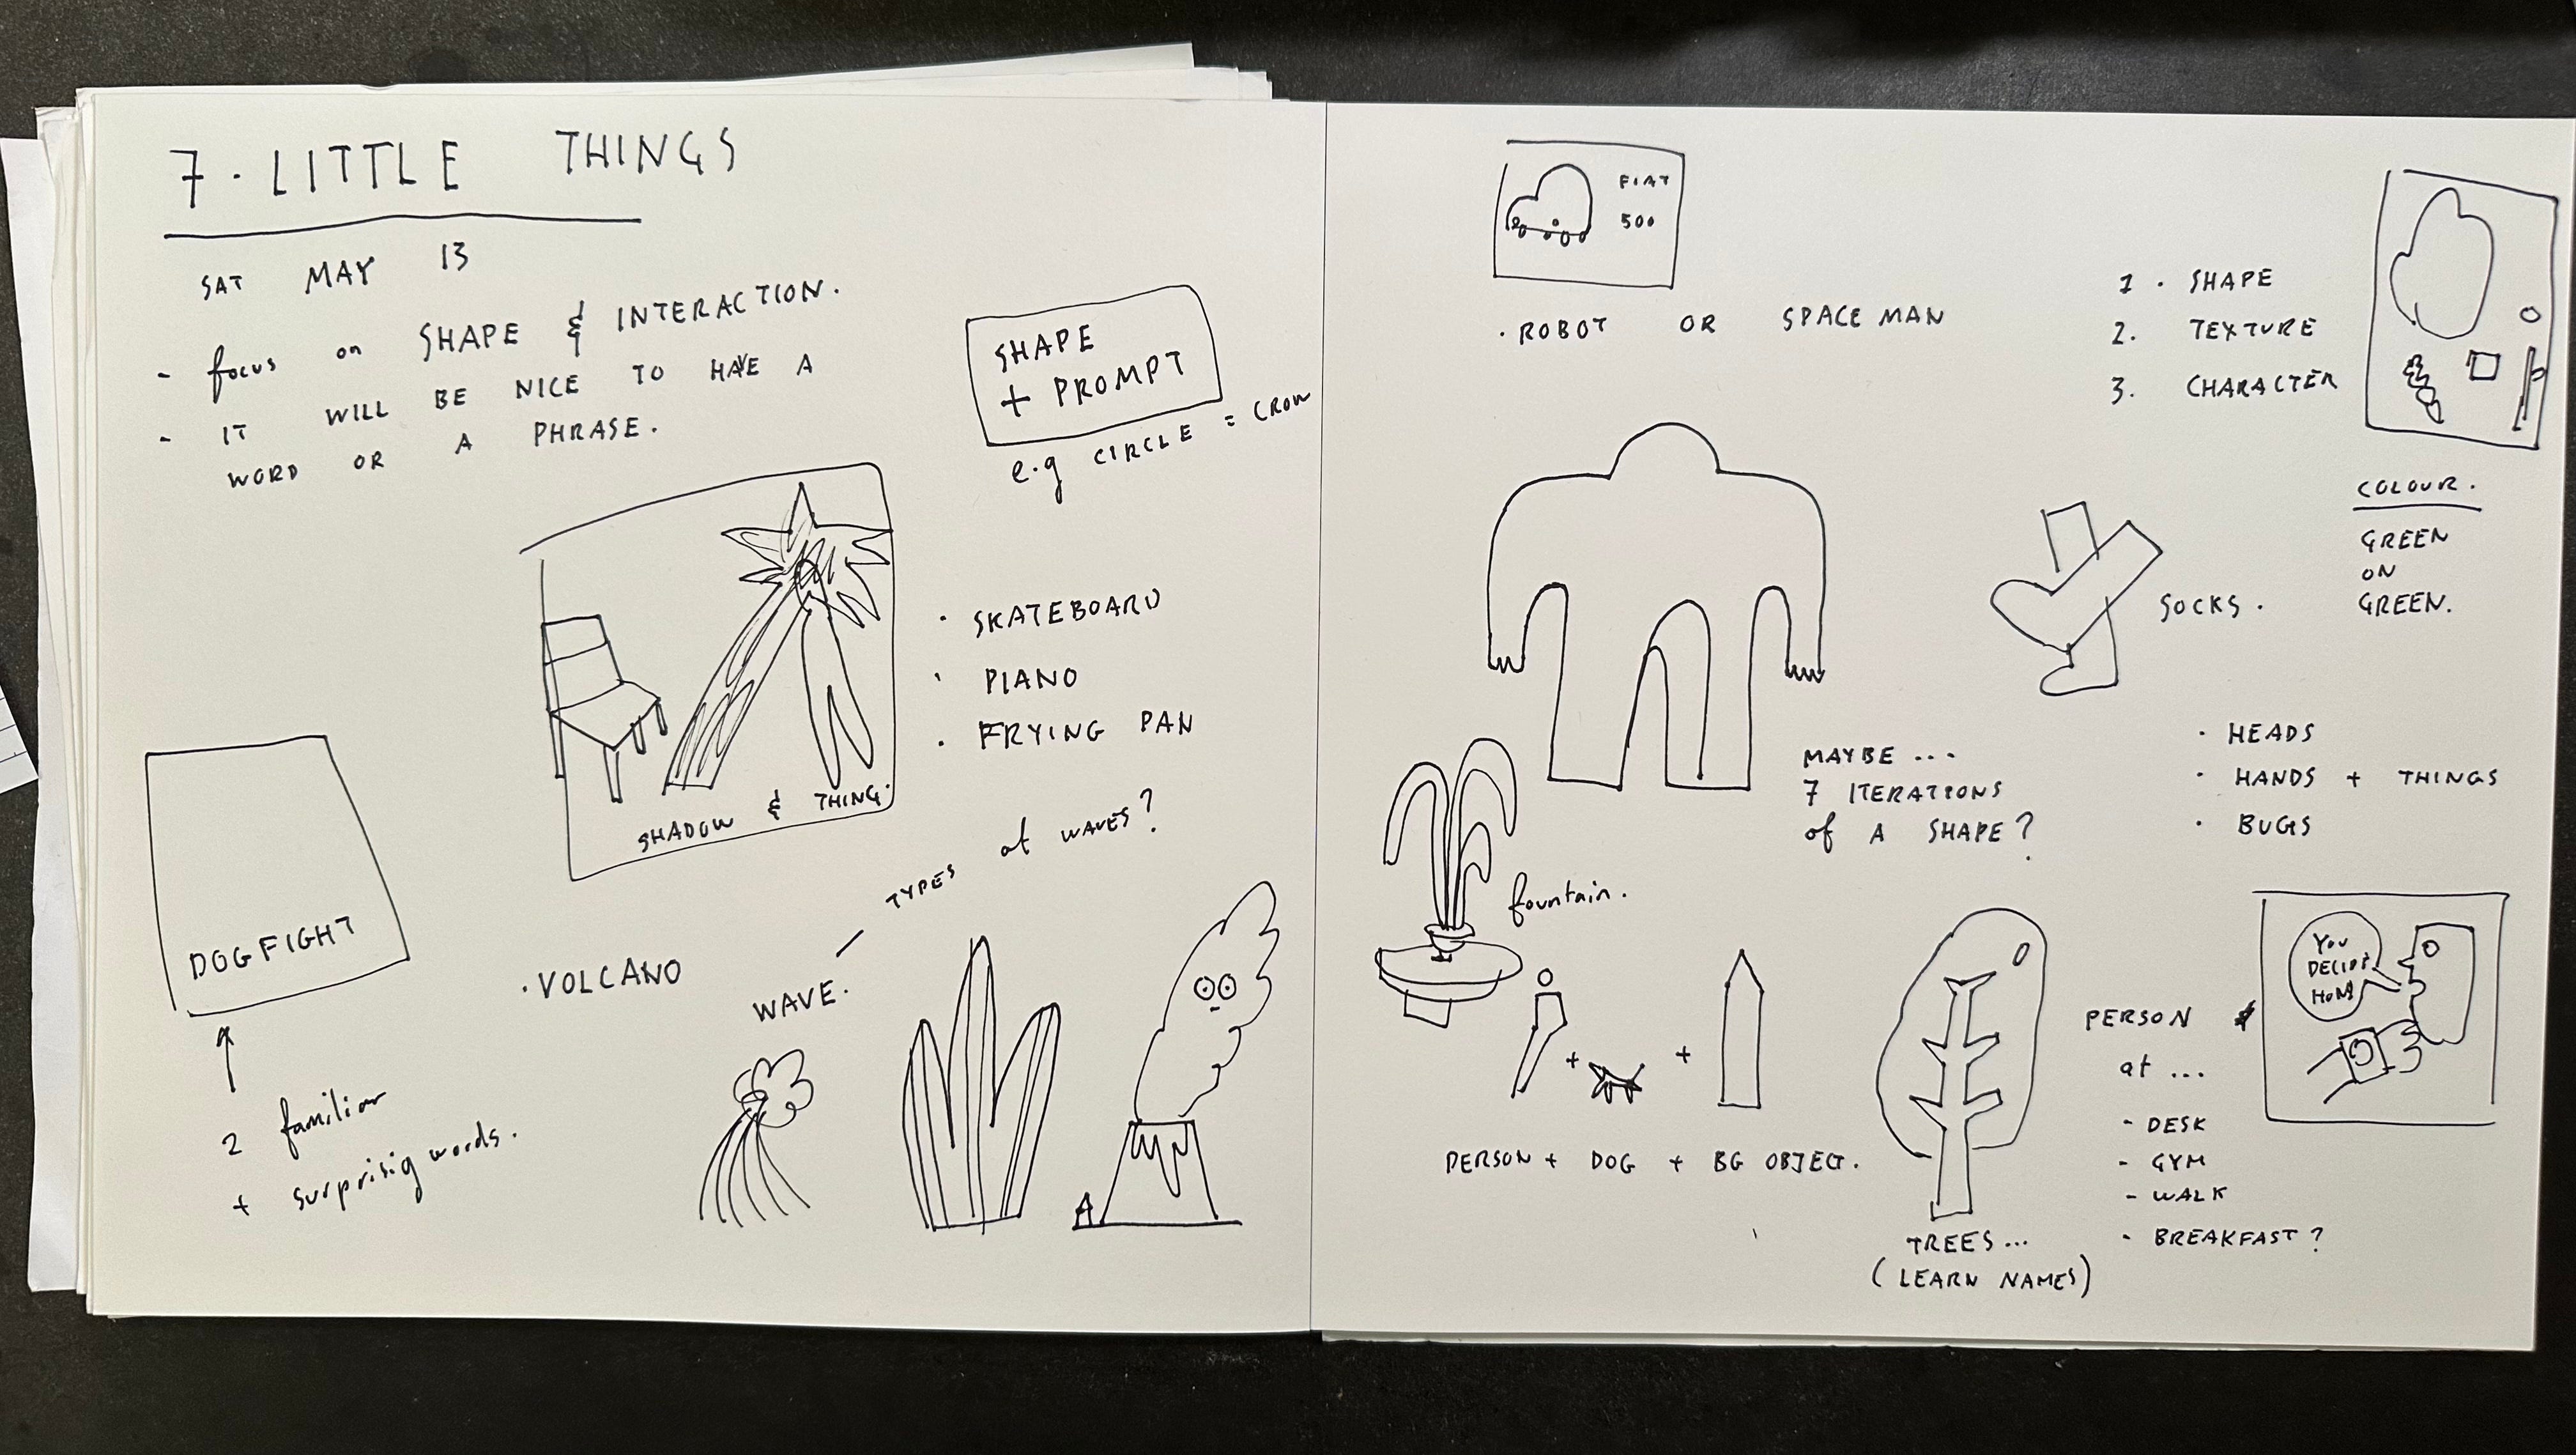 7. LITTLE THINGS
SAT MAY 13
- focus on SHAPE & INTERACTION.
- IT WILL BE NICE TO HAVE A
WORD OR A PHRASE.
SHAPE
+ PROMPT
e.g CIRCLE = CROW
SHADOW & THING.
· SKATEBOARD
· PIANO
· FRYING PAN
DOG FIGHT
2 familiar
+ surprisig words.
· VOLCANO
WAVE. — TYPES of WAVES?
FIAT
500
· ROBOT OR SPACE MAN
1. SHAPE
2. TEXTURE
3. CHARACTER
COLOUR.
GREEN
ON
GREEN.
SOCKS.
MAYBE ...
7 ITERATIONS
of A SHAPE?
· HEADS
· HANDS + THINGS
· BUGS
fountain.
+ +
PERSON + DOG + BG OBJECT.
TREES...
(LEARN NAMES)
PERSON
at ...
- DESK
- GYM
- WALK
- BREAKFAST?
YOU
DECIDE